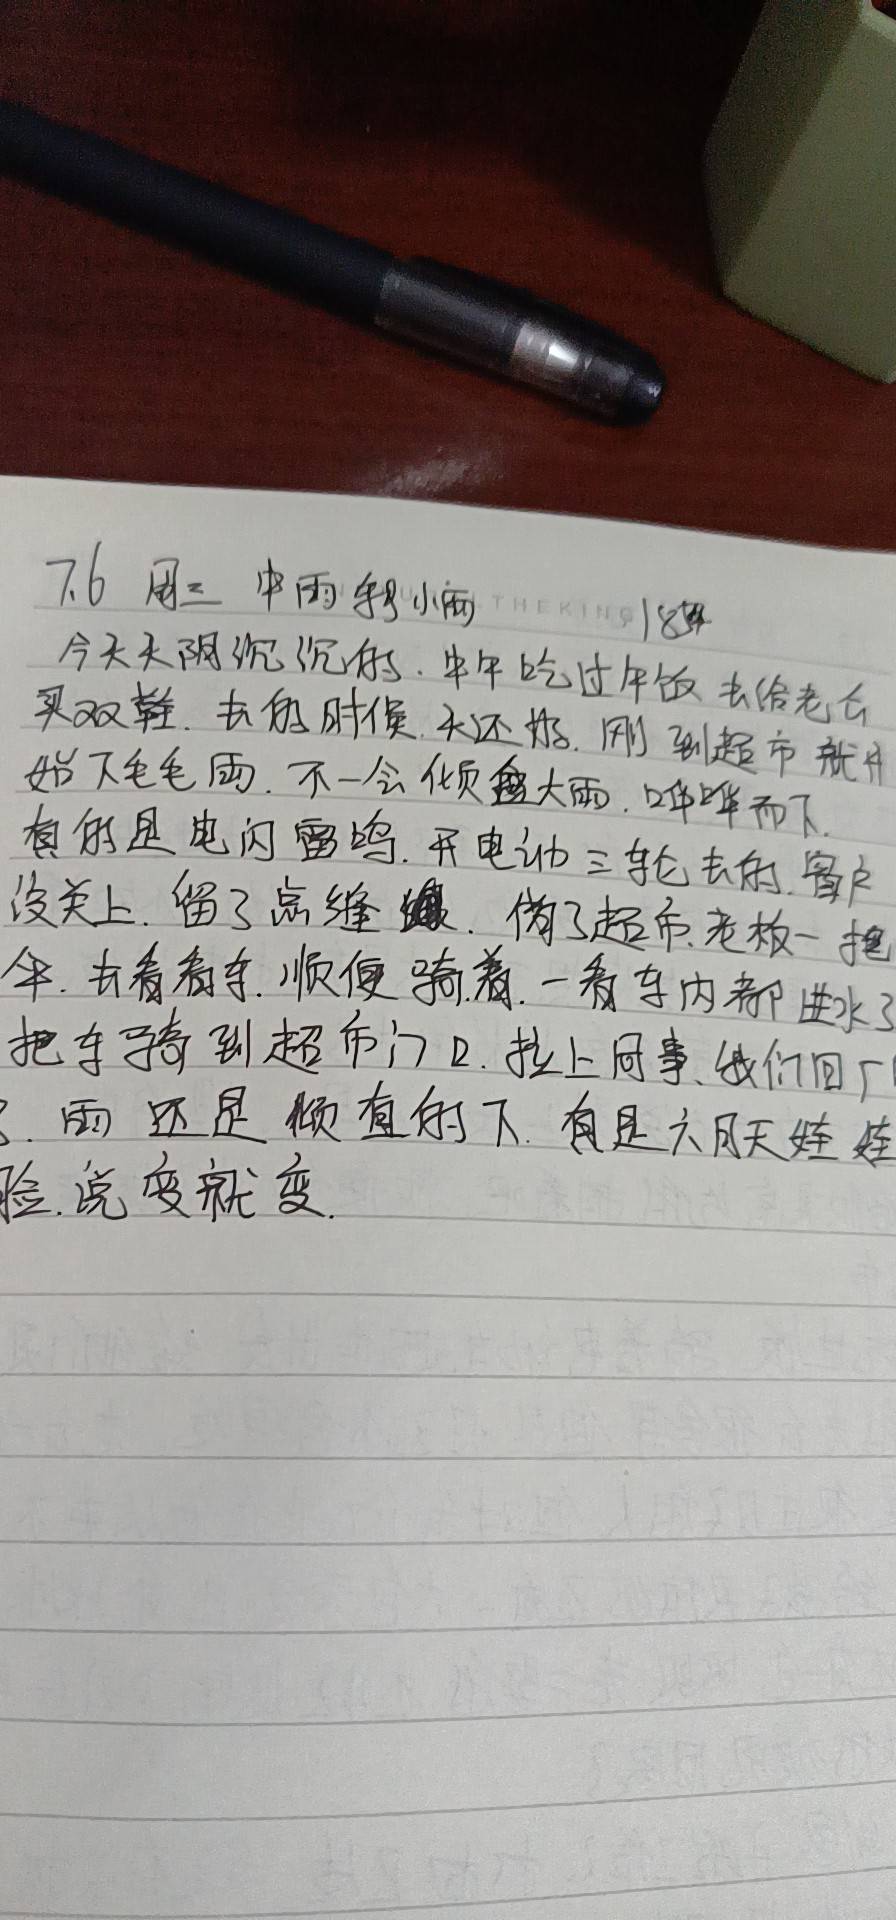 7.6 周三 中雨转小雨 18点
THEKING
今天天阴沉沉的.中午吃过午饭去给老公
买双鞋.去的时候.天还好.刚到超市就开
始下毛毛雨.不一会倾盘大雨.哗哗而下.
真的是电闪雷鸣.开电动三轮去的.窗户
没关上.留了点缝.借了超市.老板一把
伞.去看看车.顺便骑着.一看车内都进水了
把车骑到超市门口.拉上同事、我们回厂
了.雨还是倾直的下.真是六月天娃娃
脸.说变就变.